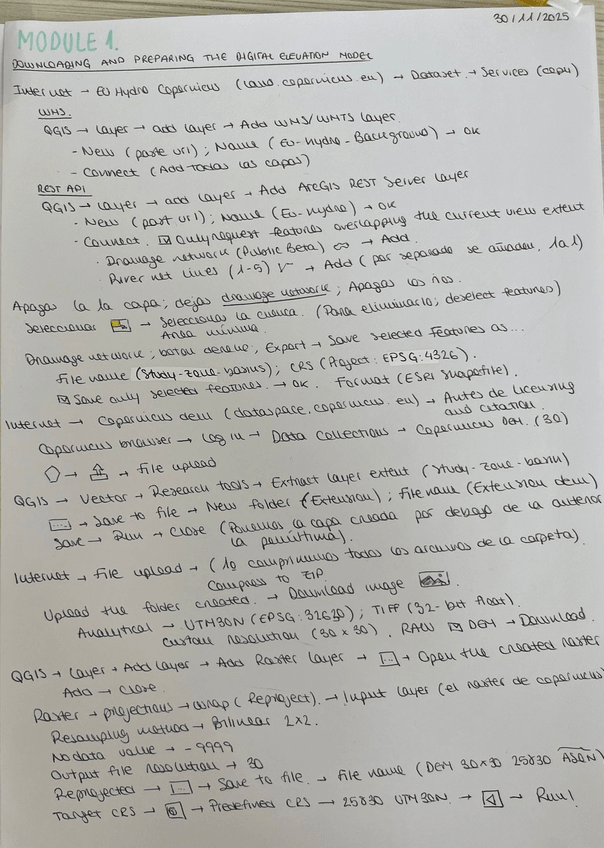 30/11/2025
MODULE 1.
DOWNLOADING AND PREPARING THE DIGITAL ELEVATION MODEL
Internet → EU Hydro Copernicus (land.copernicus.eu) → Dataset → Services (copy)
WMS.
QGIS → Layer → add layer → Add WMS/WMTS layer.
- New (paste url) ; Name (EU-Hydro-Background) → OK
- Connect (Add todas las capas)
REST API
QGIS → Layer → add layer → Add ArcGIS REST Server layer
- New (past url) ; Name (EU-Hydro) → OK
- Connect. ☑ Only request features overlapping the current view extent
· Drainage network (Public Beta) → Add.
· River net lines (1-5) → Add (por separado se añaden, 1 a 1)
Apagas la 1a capa; dejas drainage network; Apagas los ríos.
Seleccionar → Seleccionar la cuenca. (Para eliminarlo; deselect features)
Área mínima.
Drainage network; botón derecho; Export → Save selected Features as...
File name (Study-zone-basins); CRS (Project: EPSG:4326).
☑ Save only selected features. → OK. Format (ESRI Shapefile).
Internet → Copernicus dem (dataspace.copernicus.eu) → Antes de licensing
and citation.
Copernicus browser → Log in → Data Collections → Copernicus DEM. (30)
→ → File upload
QGIS → Vector → Research tools → Extract layer extent (Study-zone-basin)
[...] → Save to file → New folder (Extension) ; File name (Extension dem)
Save → Run → Close (Ponemos la capa creada por debajo de la anterior
la penúltima).
Internet → File upload → (lo comprimimos todos los archivos de la carpeta)
Compress to ZIP
Upload the folder created. → Download image
Analytical → UTM30N (EPSG:32630) ; TIFF (32-bit float).
Custom resolution (30 x 30). RAW ☑ DEM → Download.
QGIS → Layer → Add Layer → Add Raster Layer → [...] → Open the created raster
Add → Close.
Raster → projections → Warp (Reproject). → Input layer (el raster de copernicus)
Resampling method → Bilinear 2x2.
No data value → -9999
Output file resolution → 30
Reprojected → [...] → Save to file. → File name (DEM 30x30 25830
Target CRS → → Predefined CRS → 25830 UTM 30N. → → Run!